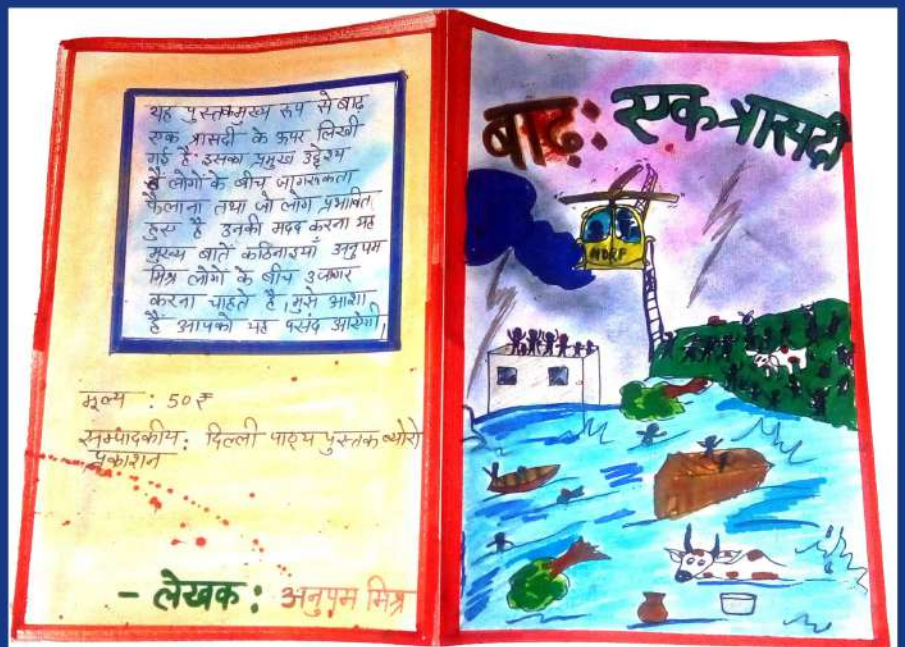 यह पुस्तक मुख्य रूप से बाढ़
एक त्रासदी के ऊपर लिखी
गई है। इसका प्रमुख उद्देश्य
है लोगों के बीच जागरूकता
फैलाना तथा जो लोग प्रभावित
हुए है उनकी मदद करना यह
मुख्य बातें कठिनाइयाँ अनुपम
मिश्र लोगों के बीच उजागर
करना चाहते है। मुझे आशा
हैं आपको यह पसंद आएगी।
मूल्य : 50₹
सम्पादकीय: दिल्ली पाठ्य पुस्तक ब्योरो
प्रकाशन
- लेखक: अनुपम मिश्र
बाढ़: एक त्रासदी
NDRF